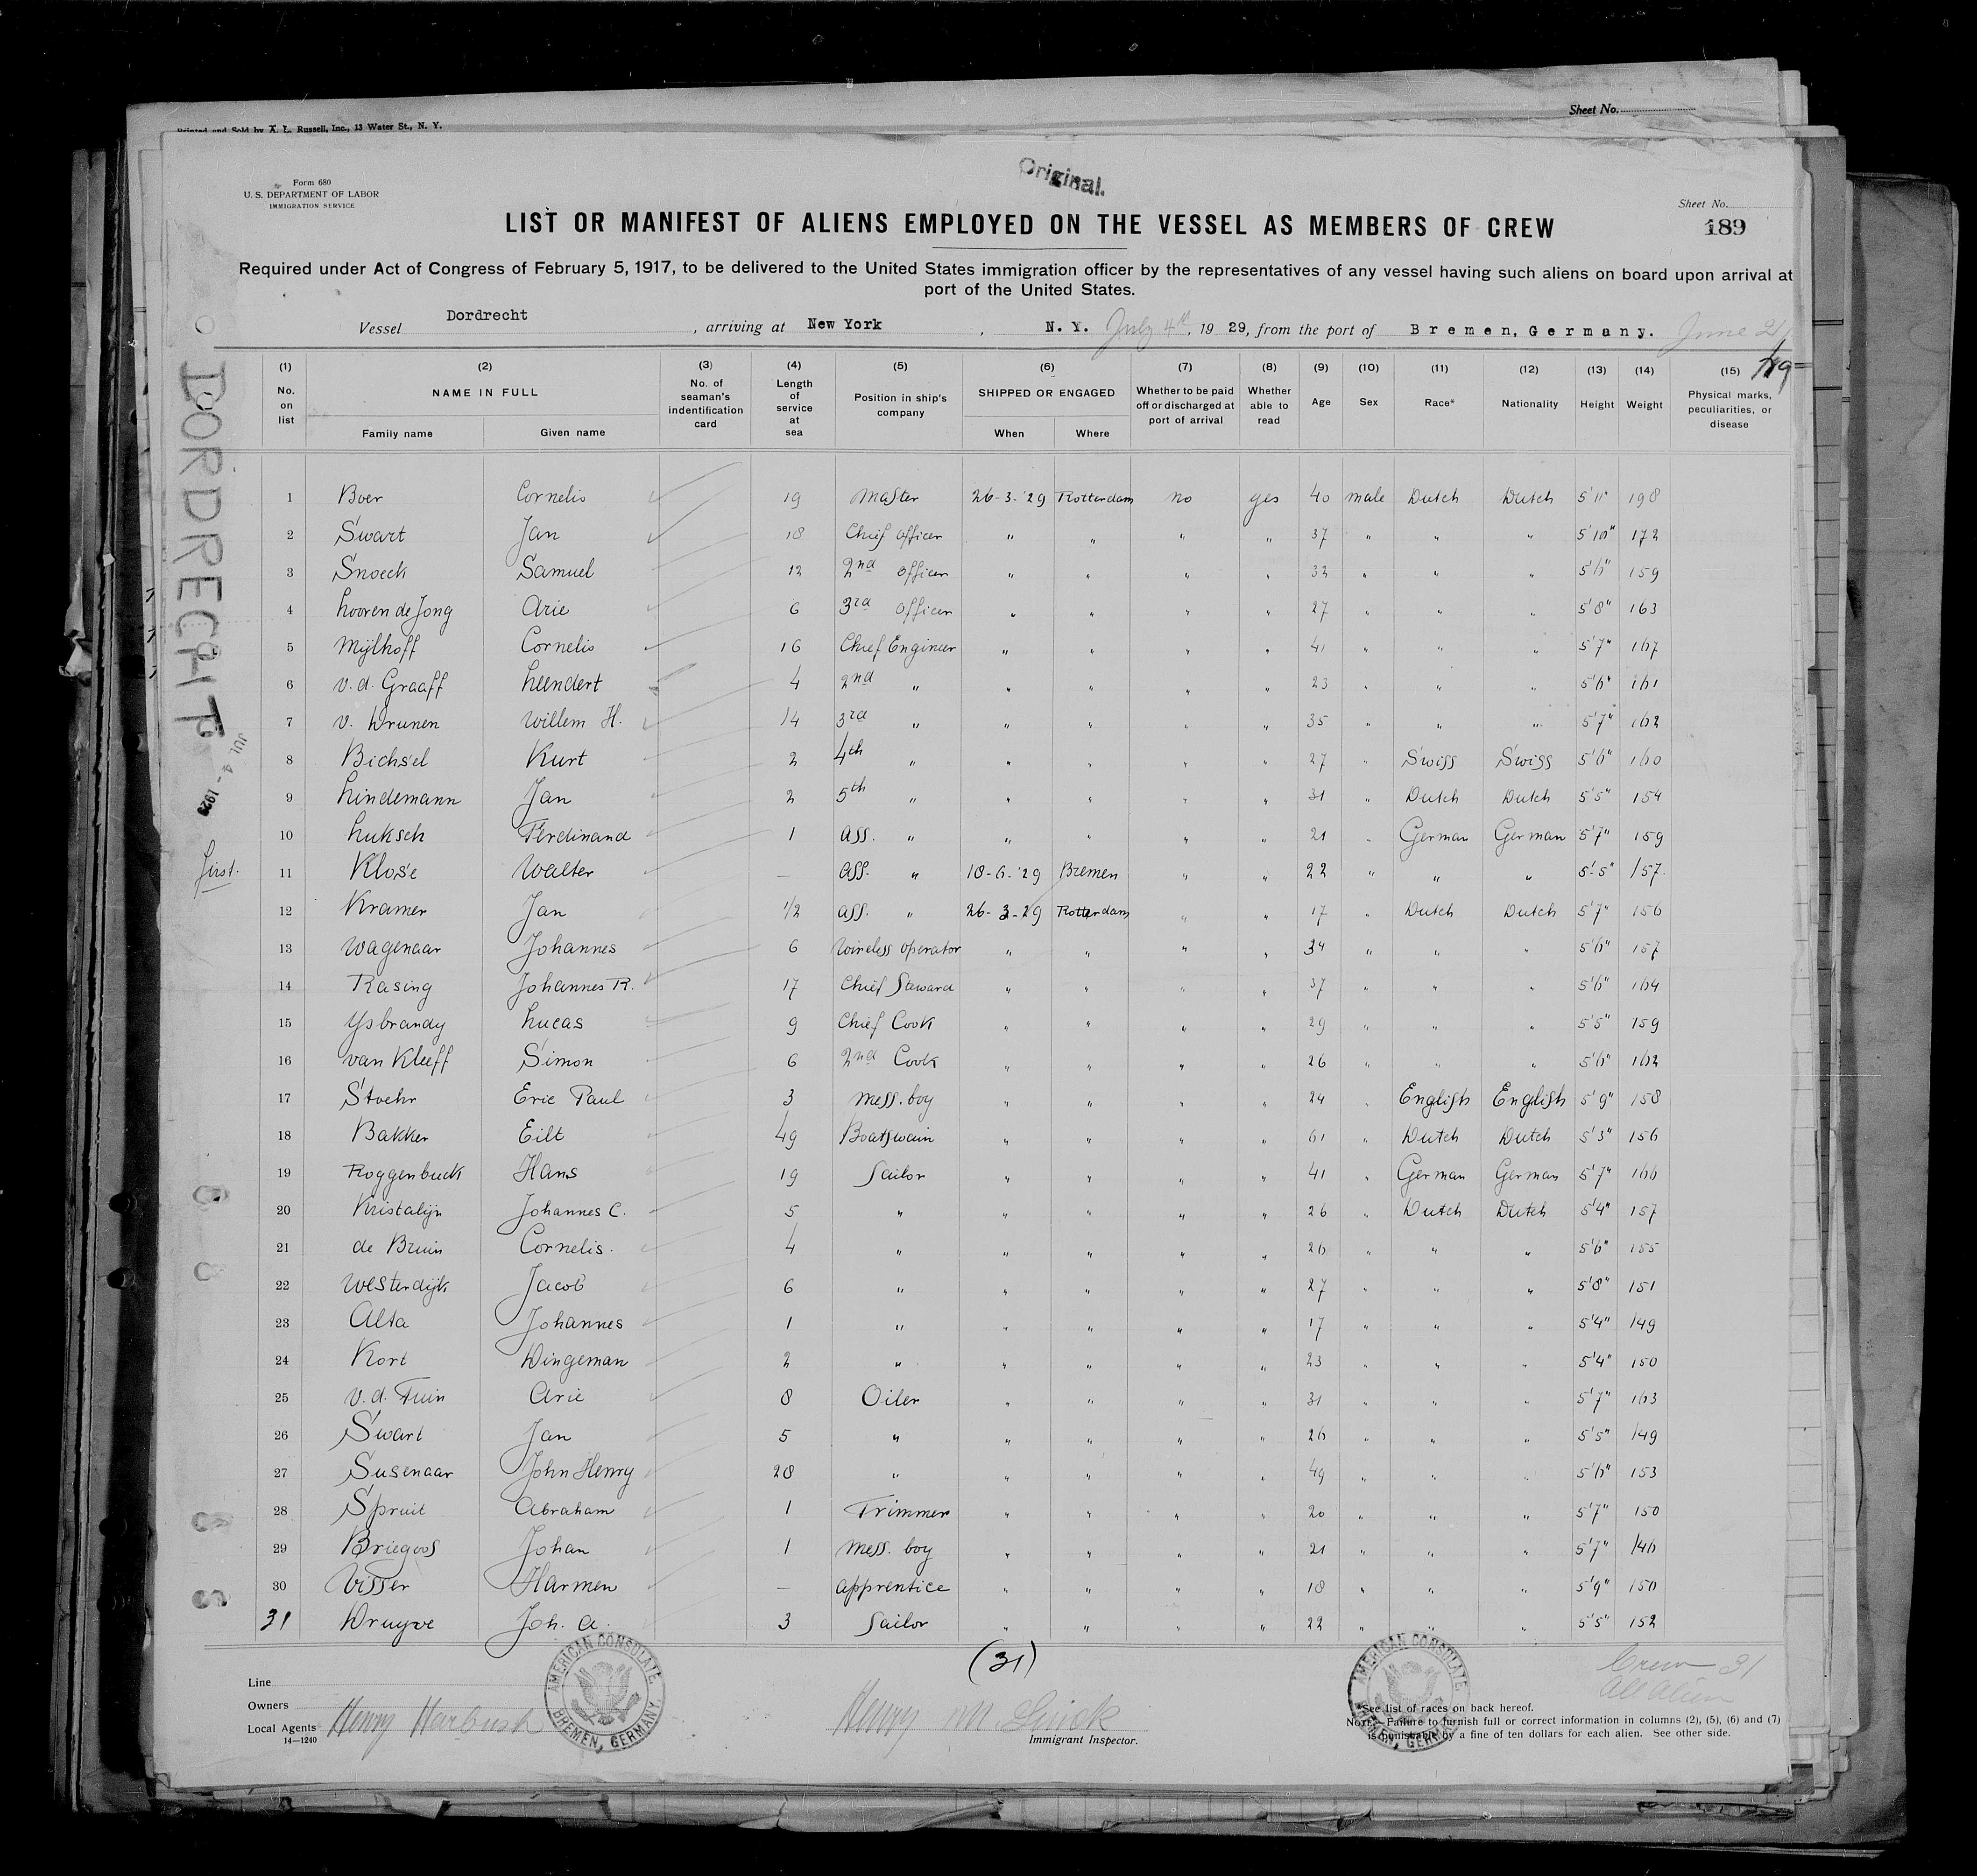 Printed and Sold by A. L. Russell, Inc., 13 Water St., N. Y.
Sheet No.
Original.
Form 680
U. S. DEPARTMENT OF LABOR
IMMIGRATION SERVICE
Sheet No.
189
LIST OR MANIFEST OF ALIENS EMPLOYED ON THE VESSEL AS MEMBERS OF CREW
Required under Act of Congress of February 5, 1917, to be delivered to the United States immigration officer by the representatives of any vessel having such aliens on board upon arrival at
port of the United States.
Vessel Dordrecht, arriving at New York, N. Y. July 4th, 19 29, from the port of Bremen, Germany. June 21
DORDRECHT
JUL 4 - 1929
First.
(1) No. on list (2) NAME IN FULL Family name Given name (3) No. of seaman's indentification card (4) Length of service at sea (5) Position in ship's company (6) SHIPPED OR ENGAGED When Where (7) Whether to be paid off or discharged at port of arrival (8) Whether able to read (9) Age (10) Sex (11) Race* (12) Nationality (13) Height (14) Weight (15) Physical marks, peculiarities, or disease
1 Boer Cornelis 19 Master 26-3-'29 Rotterdam no yes 40 male Dutch Dutch 5'11" 198
2 Swart Jan 18 Chief officer " " " " 37 " " " 5'10" 172
3 Snoeck Samuel 12 2nd officer " " " " 32 " " " 5'6" 159
4 Looren de Jong Arie 6 3rd officer " " " " 27 " " " 5'8" 163
5 Mijlhoff Cornelis 16 Chief Engineer " " " " 41 " " " 5'7" 167
6 v.d. Graaff Leendert 4 2nd " " " " " 23 " " " 5'6" 161
7 v. Drunen Willem H. 14 3rd " " " " " 35 " " " 5'7" 162
8 Bichsel Kurt 2 4th " " " " " 27 " Swiss Swiss 5'6" 160
9 Lindemann Jan 2 5th " " " " " 31 " Dutch Dutch 5'5" 154
10 Luksch Ferdinand 1 ass. " " " " " 21 " German German 5'7" 159
11 Klose Walter — ass. " 18-6-'29 Bremen " " 22 " " " 5'5" 157
12 Kramer Jan 1/2 ass. " 26-3-29 Rotterdam " " 17 " Dutch Dutch 5'7" 156
13 Wagenaar Johannes 6 Wireless operator " " " " 34 " " " 5'6" 157
14 Rasing Johannes R. 17 Chief Steward " " " " 37 " " " 5'6" 164
15 Ysbrandy Lucas 9 Chief Cook " " " " 29 " " " 5'5" 159
16 van Kleeff Simon 6 2nd Cook " " " " 26 " " " 5'6" 162
17 Stoehr Eric Paul 3 mess. boy " " " " 24 " English English 5'9" 158
18 Bakker Eilt 49 Boatswain " " " " 61 " Dutch Dutch 5'3" 156
19 Roggenbuck Hans 19 Sailor " " " " 41 " German German 5'7" 166
20 Kristalijn Johannes C. 5 " " " " " 26 " Dutch Dutch 5'4" 157
21 de Bruin Cornelis. 4 " " " " " 26 " " " 5'6" 155
22 Westerdijk Jacob 6 " " " " " 27 " " " 5'8" 151
23 Alta Johannes 1 " " " " " 17 " " " 5'4" 149
24 Kort Dingeman 2 " " " " " 23 " " " 5'4" 150
25 v.d. Tuin Arie 8 Oiler " " " " 31 " " " 5'7" 163
26 Swart Jan 5 " " " " " 26 " " " 5'5" 149
27 Susenaar John Henry 28 " " " " " 49 " " " 5'6" 153
28 Spruit Abraham 1 Trimmer " " " " 20 " " " 5'7" 150
29 Briegoos Johan 1 Mess. boy " " " " 21 " " " 5'7" 146
30 Visser Harmen — apprentice " " " " 18 " " " 5'9" 150
31 Druyve Joh. A. 3 Sailor " " " " 22 " " " 5'5" 152
(31)
Crew 31
All alien
Line
Owners
Local Agents
14—1240
AMERICAN CONSULATE. BREMEN, GERMANY.
Immigrant Inspector.
AMERICAN CONSULATE. BREMEN, GERMANY.
*See list of races on back hereof.
NOTE.—Failure to furnish full or correct information in columns (2), (5), (6) and (7)
is punishable by a fine of ten dollars for each alien. See other side.